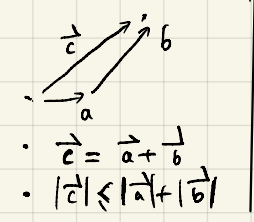 c⃗ b
a
• c⃗ = a⃗ + b⃗
• |c⃗| ≤ |a⃗| + |b⃗|